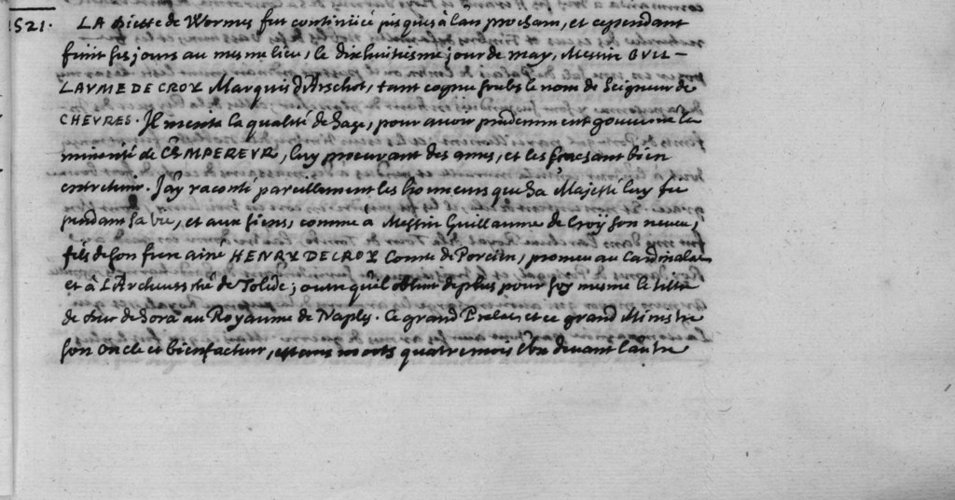 1521. LA Diette de Wormes fut continuée jusques à l'an prochain, et cependant
finit ses jours au mesme lieu, le dixhuitiesme jour de may, Messire GVIL-
LAVME DE CROY Marquis d'Arschot, tant cognu soubs le nom de Seigneur de
CHEVRES. Il merita la qualité de Sage, pour avoir prudemment gouverné la
minorité de l'EMPEREVR, luy procurant des amis, et les sçachant bien
entretenir. J'ay raconté pareillement les honneurs que Sa Majesté luy fit
pendant sa vie, et aux siens, comme à Messire Guillaume de Croy son neveu,
fils de son frere aisné HENRY DE CROY Comte de Porcien, promeu au Cardinalat
et à l'Archevesché de Tolede; outre qu'il obtint de plus pour soy mesme le titre
de duc de Sora au Royaume de Naples. Ce grand Prelat, et ce grand Ministre
son oncle et bienfacteur, estans morts quatre mois l'un devant l'autre